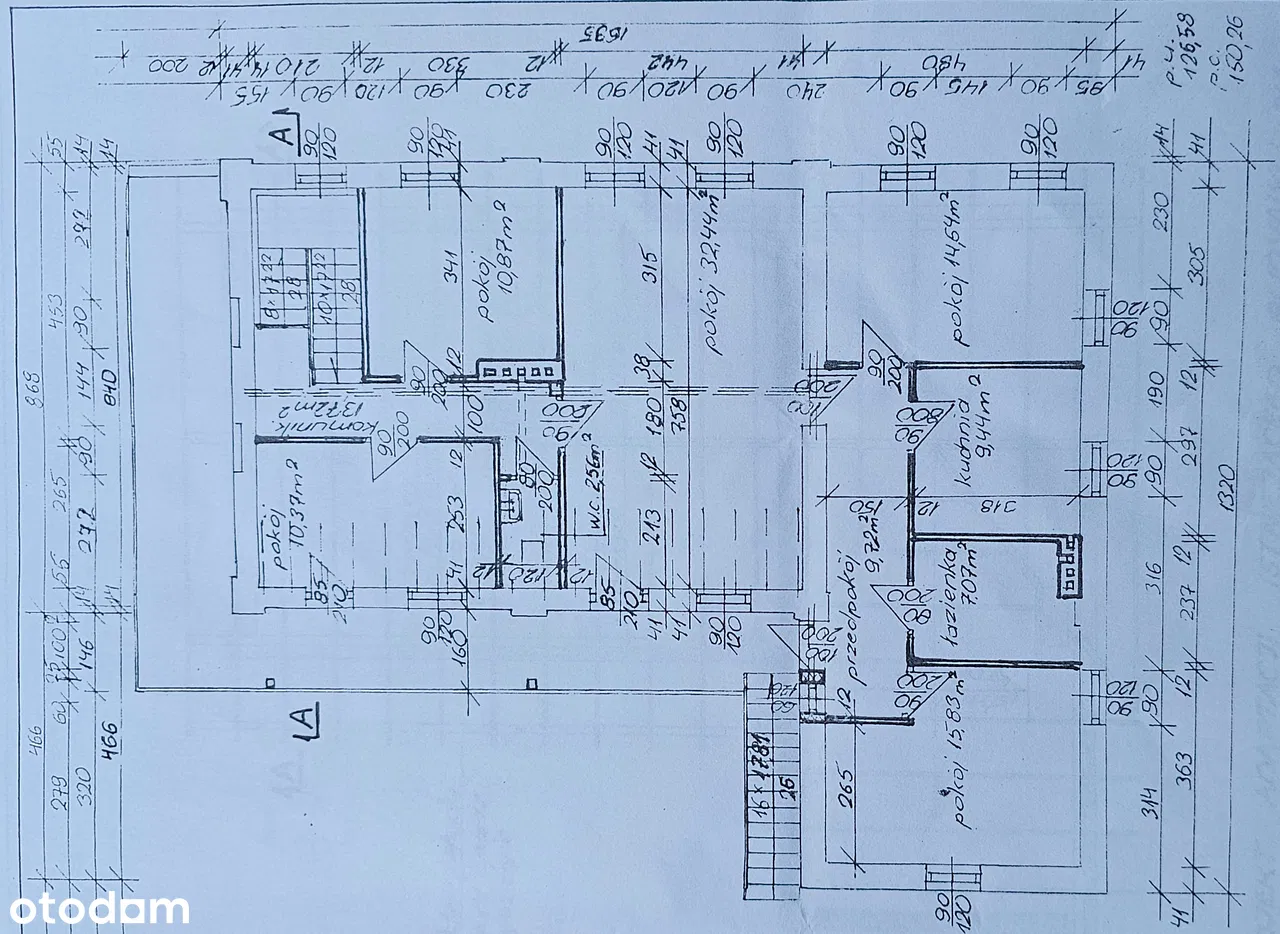 1635
200
12
41
14
210
12
330
12
442
41
480
41
155
90
120
90
230
90
120
90
240
90
145
90
95
p.u.
126,58
p.c.
150,26
A
90
120
90
120
90
120
90
120
90
120
90
120
55
14
14
868
453
272
90
144
840
90
265
272
55
41
41
466
279
60
100
146
320
466
8×17,22
28
10×17,22
28
341
pokój
10,87m²
315
pokój 32,44m²
pokój 14,64m²
12
38
90
200
90
200
komunik.
13,72m²
90
200
100
12
200
90
180
758
200
100
200
90
kuchnia
9,44m²
pokój
10,37m²
253
80
200
w.c. 2,56m²
12
213
150
12
318
85
210
90
120
160
41
12
120
12
85
210
41
41
90
120
przedpokój
9,72m²
200
80
łazienka
7,07m²
200
100
12
200
90
pokój 15,83m²
A
16×17,81
25
265
90
120
90
120
90
120
90
120
14
41
230
305
90
190
12
90
297
1320
316
12
237
90
12
363
314
41
otodom